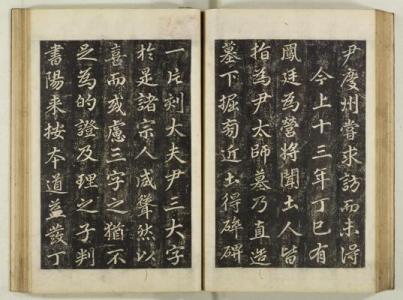 尹慶州嘗求訪而未得
今上十三年丁巳有
鳳廷為營將聞土人皆
指為尹太師墓乃直造
墓下掘有近土得碑碑
一片刻大夫尹三大字
於是諸宗人咸聳然以
喜而或慮三字之猶不
足為的證及理之子判
書陽来按本道益發丁